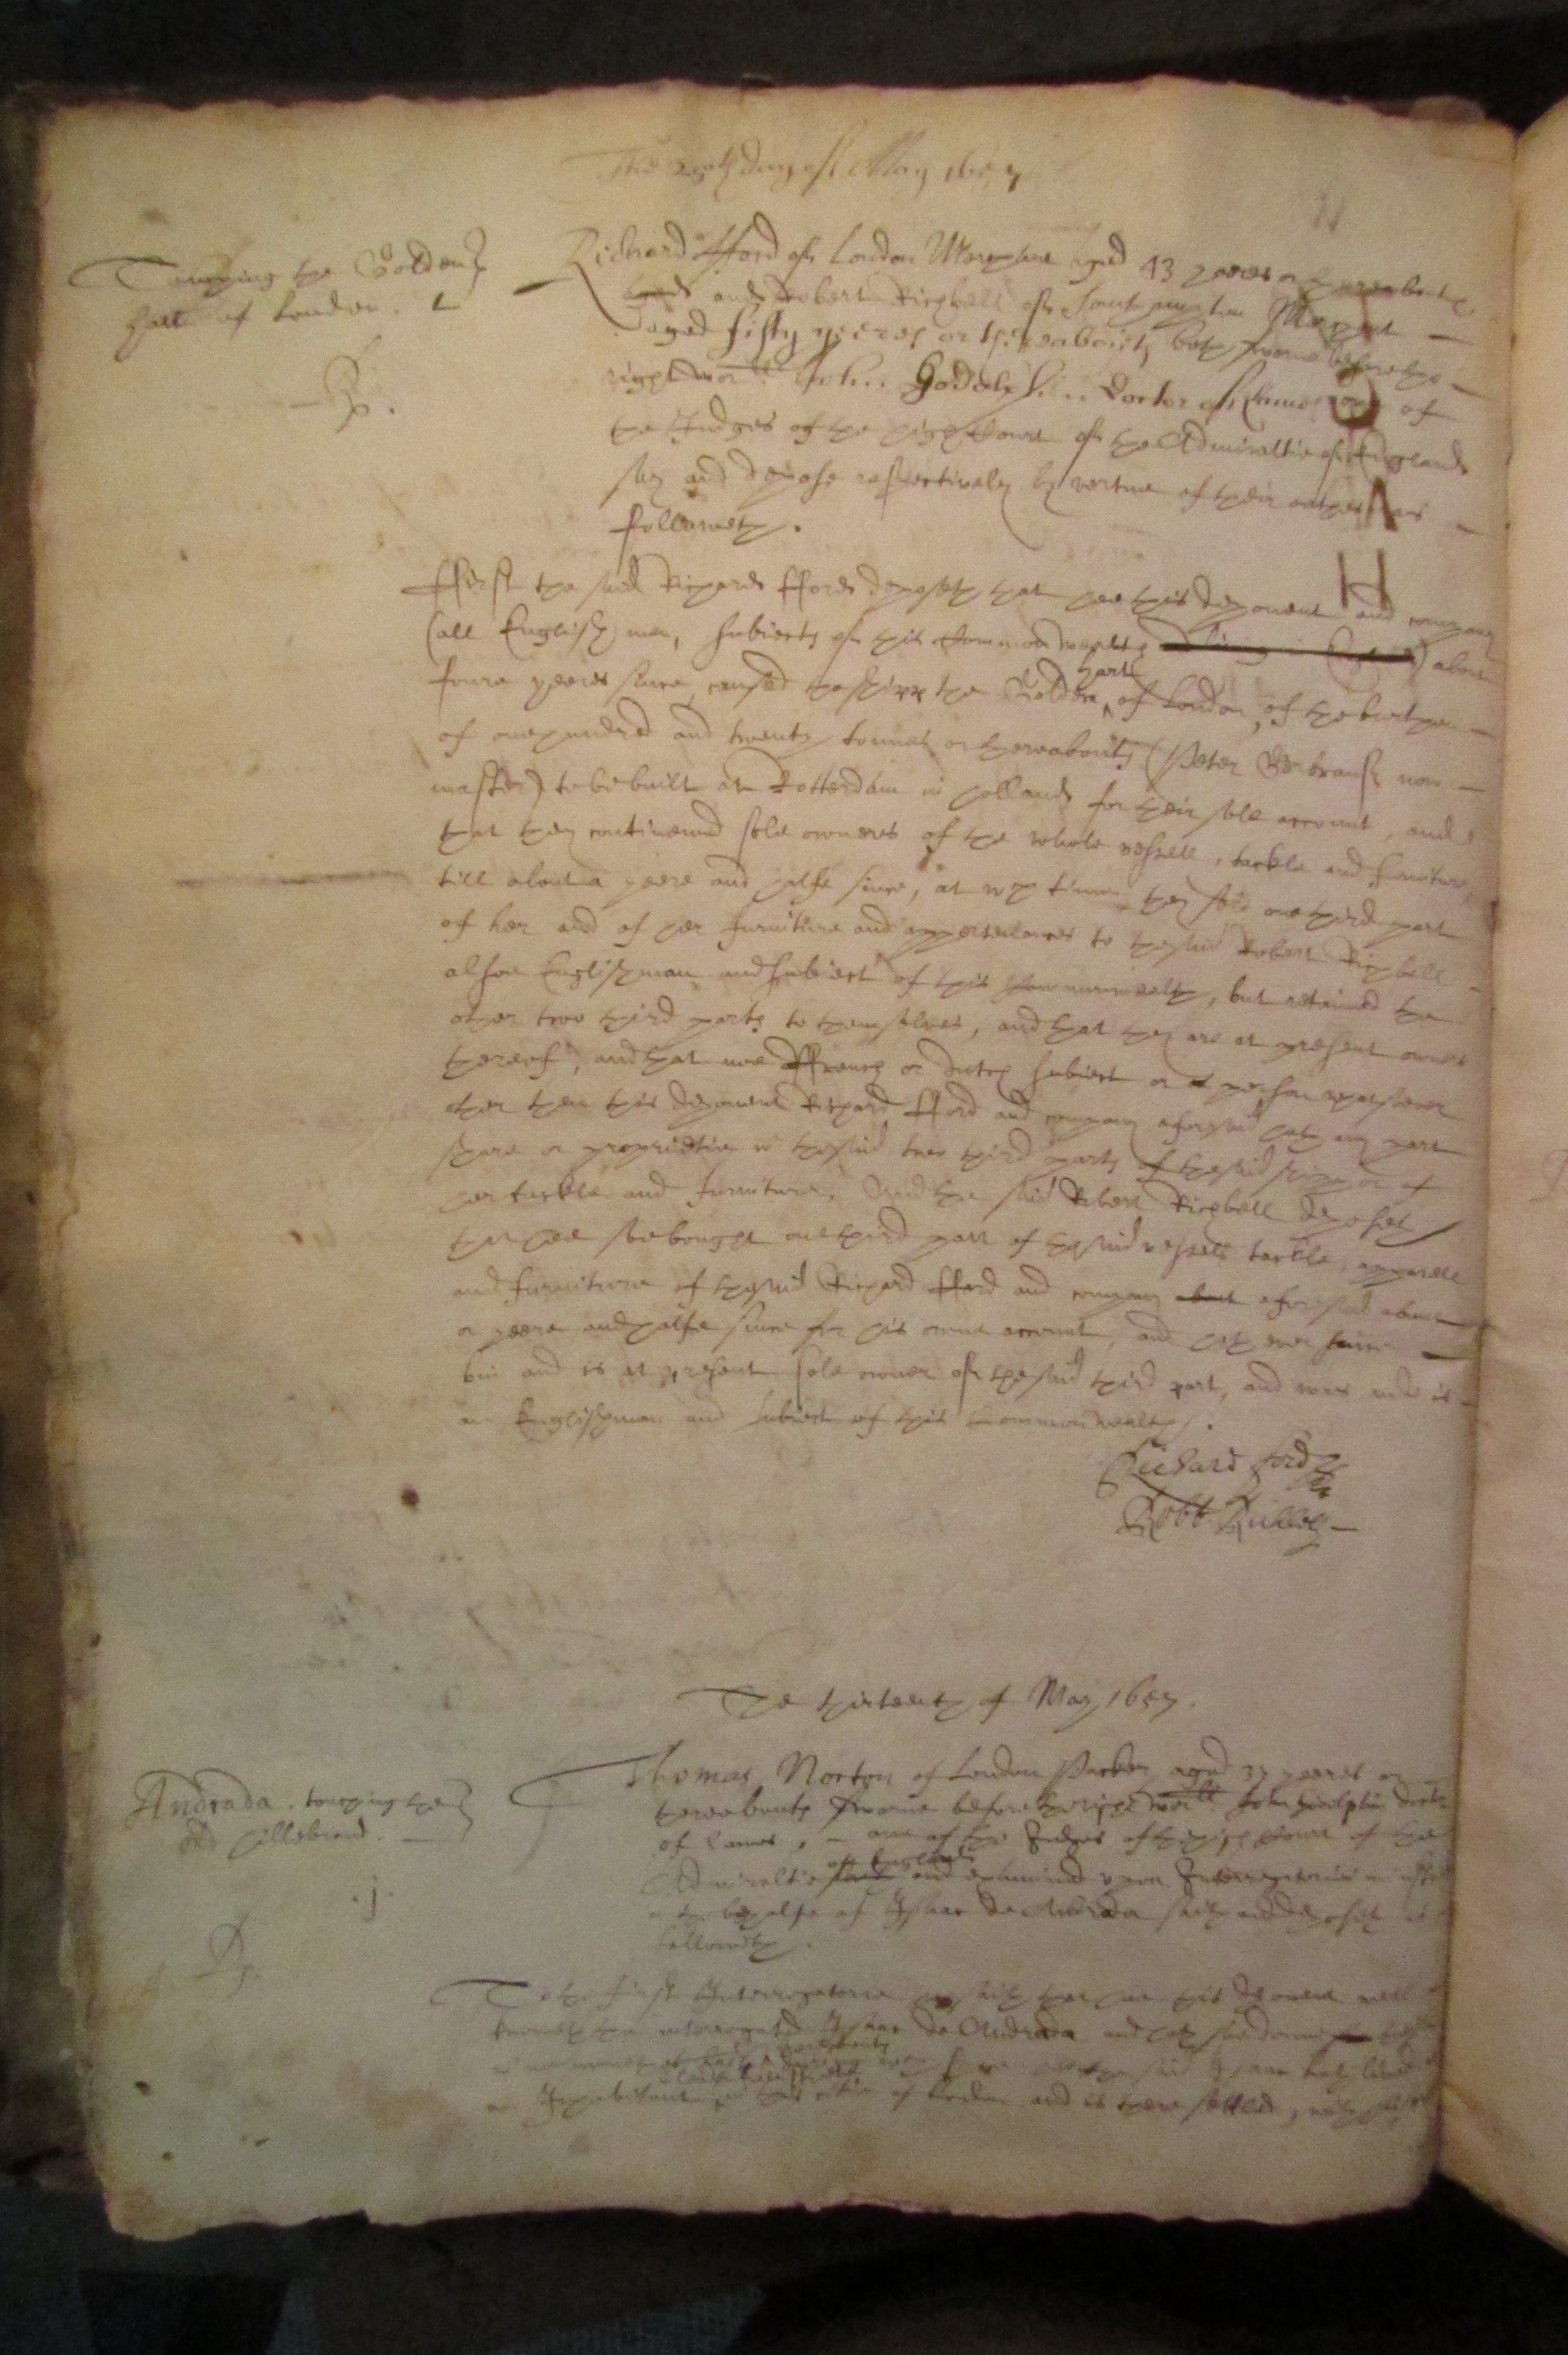 The 29th day of May 1657
Touching the Golden
hart of London.
Richard fford of London Merchant aged 43 yeares or thereabouts
and Robert Richbell of Southampton Merchant
aged fifty yeeres or thereabouts both sworne before the
right worll John Godolphin Doctor of Lawes one of
the Judges of the high Court of the Admiraltie of England
say and depose respectively by vertue of their oathes as
followeth.
ffirst the said Richard fford deposeth that hee this deponent and company
(all English men, subiects of this Commonwealth) about
foure yeeres since caused the shipp the Golden hart of London, of the burthen
of one hundred and twenty tonnes or thereabouts (Peter now
master) to be built at Rotterdam in holland for their sole account, and
that they continewed sole owners of the whole vessell, tackle and furniture,
till about a yeere and halfe since, at wch time they sold one third part
of her and of her furniture and appurtenances to the said Robert Richbell
alsoe Englishman and subiect of this Commonwealth, but retained the
other two third parts to themselves, and that they are at present owners
thereof, and that noe ffrench or dutch subiect or person whatsoever
other then this deponent Richard fford and company aforesaid hath any part
share or proprietie in the said two third parts of the said shipp or of
her tackle and furniture. And the said Robert Richbell deposeth
that hee soe bought one third part of the said vessell tackle, apparell
and furniture of the said Richard fford and company about aforesaid about
a yeere and halfe since for his owne account, and hath ever since
bin and is at present sole owner of the said third part, and was and is
an Englishman and subiect of this Commonwealth.
Richard fford
Robt Richbell
The thirteeth of May 1657.
Andrada. touching the
hillebrand.
.j.
Thomas Norton of London Packer aged 37 yeares or
thereabouts sworne before the right worll John Godolphin doctor
of lawes, one of the Judges of the high Court of the
Admiraltie of England and examined upon Interrogatories
the behalfe of Isaac de Andrada saith and deposeth as
followeth.
To the first Interrogatorie hee saith that hee this deponent well
knoweth the interrogated Isaac de Andrada and hath
the said Isaac hath lived
an Inhabitant in this citie of London and is there settled, with his